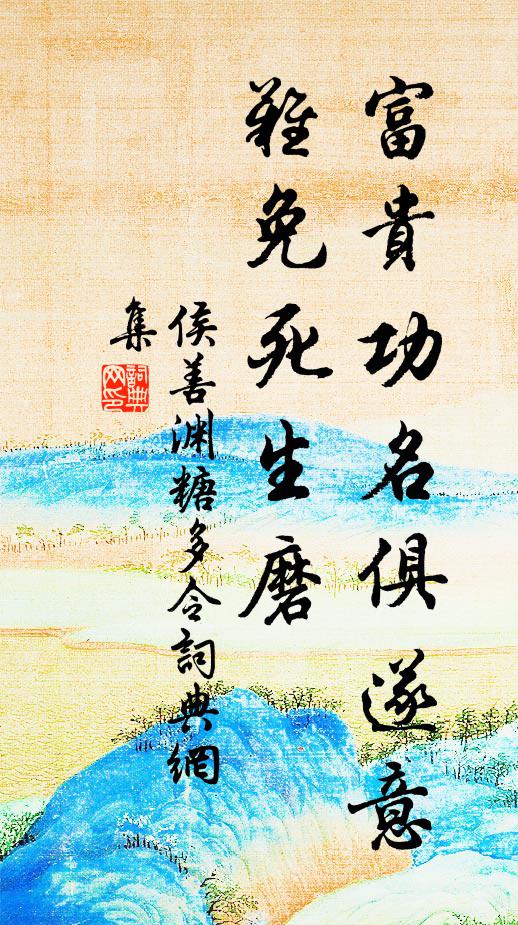 富貴功名俱遂意
難免死生磨
侯善渊糖多令詞典網
集
詞典
网印